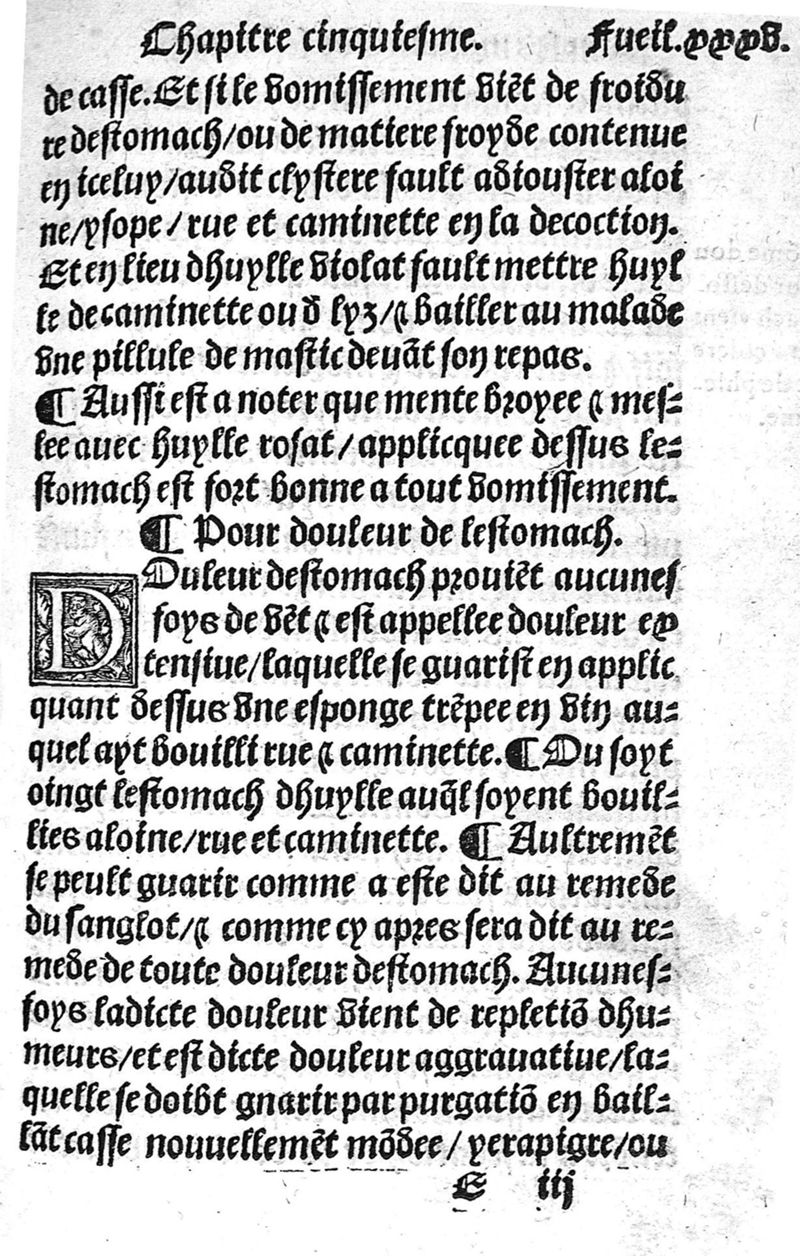 Chapitre cinquiesme. Fueil.xxxv.
de casse. Et si le vomissement viẽt de froidu
re destomach/ou de matiere froyde contenue
en iceluy/audit clystere fault adiouster aloi
ne/ysope/rue et caminette en la decoction.
Et en lieu dhuylle violat fault mettre huyl
le de caminette ou d lyz/⁊ bailler au malade
vne pillule de mastic deuãt son repas.
¶ Aussi est a noter que mente broyee ⁊ mes⸗
lee auec huylle rosat/applicquee dessus le⸗
stomach est fort bonne a tout vomissement.
¶ Pour douleur de lestomach.
DOuleur destomach prouiẽt aucunes
foys de vẽt ⁊ est appellee douleur ex
tensiue/laquelle se guarist en applic
quant dessus vne esponge trẽpee en vin au⸗
quel ayt bouilli rue ⁊ caminette. ¶ Ou soyt
oingt lestomach dhuylle auq̃l soyent bouil⸗
lies aloine/rue et caminette. ¶ Aultremẽt
se peult guarir comme a este dit au remede
du sanglot/⁊ comme cy apres sera dit au re⸗
mede de toute douleur destomach. Aucunes⸗
foys ladicte douleur vient de repletiõ dhu⸗
meurs/et est dicte douleur aggrauatiue/la⸗
quelle se doibt gnarir par purgatiõ en bail⸗
lãt casse nouuellemẽt mõdee/yerapigre/ou
E iij